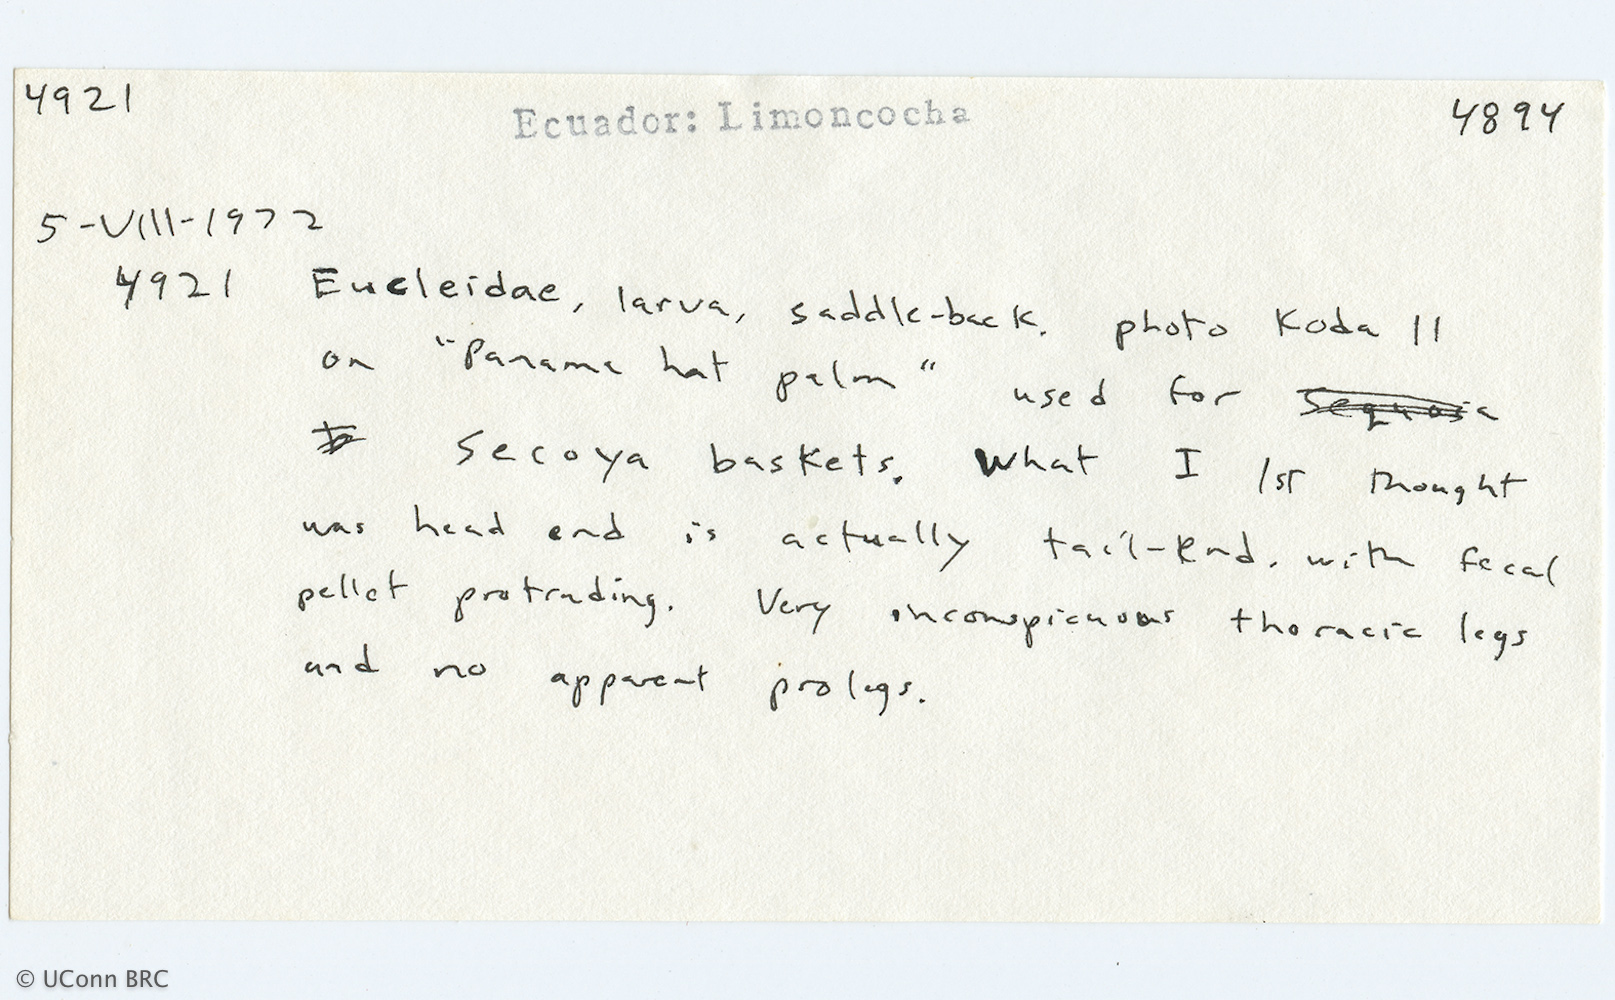 4921
Ecuador: Limoncocha
4894
5-VIII-1972
4921 Eucleidae, larva, saddle-back. photo Koda 11
on "Panama hat palm" used for Sequoia
Secoya baskets. What I 1st thought
was head end is actually tail-end, with fecal
pellet protruding. Very inconspicuous thoracic legs
and no apparent prolegs.
© UConn BRC